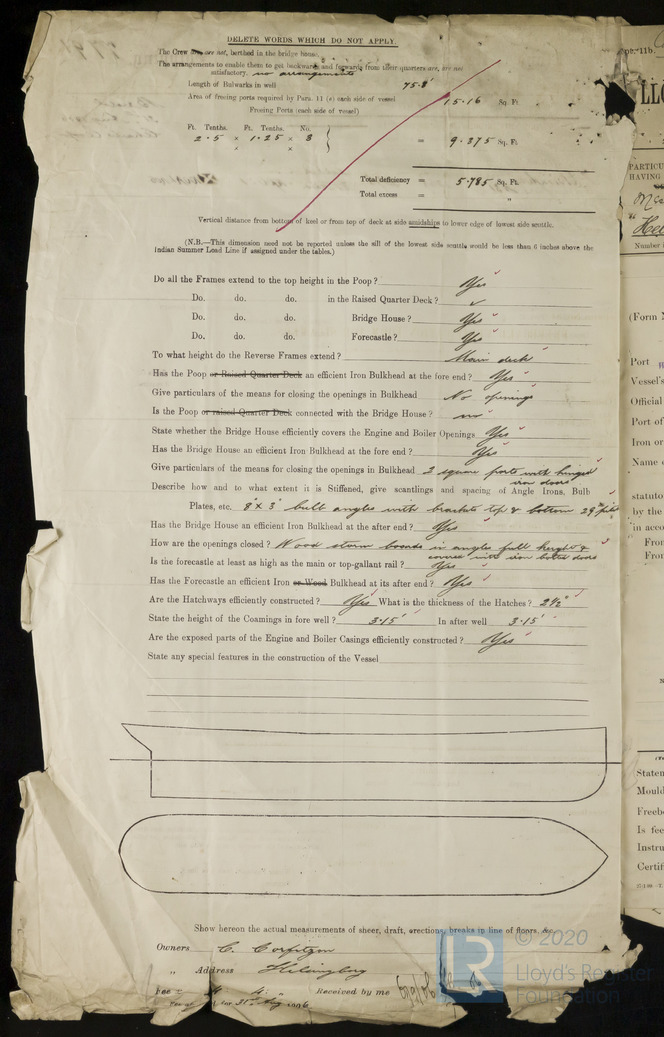 DELETE WORDS WHICH DO NOT APPLY.
The Crew are, are not, berthed in the bridge house.
The arrangements to enable them to get backwards and forwards from their quarters are, are not
satisfactory. no arrangements
Length of Bulwarks in well 75.8'
Area of freeing ports required by Para. 11 (e) each side of vessel 15.16 Sq. Ft.
Freeing Ports (each side of vessel)
Ft. Tenths. Ft. Tenths. No.
2.5 × 1.25 × 3 = 9.375 Sq. Ft.
× ×
Total deficiency = 5.785 Sq. Ft.
Total excess = "
Vertical distance from bottom of keel or from top of deck at side amidships to lower edge of lowest side scuttle.
(N.B.—This dimension need not be reported unless the sill of the lowest side scuttle would be less than 6 inches above the
Indian Summer Load Line if assigned under the tables.)
Do all the Frames extend to the top height in the Poop? Yes
Do. do. do. in the Raised Quarter Deck? ✓
Do. do. do. Bridge House? Yes
Do. do. do. Forecastle? Yes
To what height do the Reverse Frames extend? Main deck
Has the Poop or Raised Quarter Deck an efficient Iron Bulkhead at the fore end? Yes
Give particulars of the means for closing the openings in Bulkhead No openings
Is the Poop or raised Quarter Deck connected with the Bridge House? no
State whether the Bridge House efficiently covers the Engine and Boiler Openings Yes
Has the Bridge House an efficient Iron Bulkhead at the fore end? Yes
Give particulars of the means for closing the openings in Bulkhead 2 square ports with hinged
iron doors
Describe how and to what extent it is Stiffened, give scantlings and spacing of Angle Irons, Bulb
Plates, etc. 8" × 3" bulb angles with brackets top & bottom
Has the Bridge House an Iron Bulkhead at the after end? Yes
How are the openings closed? Wood storm boards in angles full height &
covered with iron bolted doors
Is the forecastle at least as high as the main or top-gallant rail? Yes
Has the Forecastle an efficient Iron or Wood Bulkhead at its after end? Yes
Are the Hatchways efficiently constructed? Yes What is the thickness of the Hatches? 2½"
State the height of the Coamings in fore well? 3.15' In after well 3.15'
Are the exposed parts of the Engine and Boiler Casings efficiently constructed? Yes
State any special features in the construction of the Vessel
Show hereon the actual measurements of sheer, draft, erections, breaks in line of floors, &c.
Owners C. Corfitzon
" Address Helsingborg
Fee £ 4. 4. " Received by me
© 2020
Lloyd's Register
Foundation
LR
pt. 11b.
PARTICU
HAVING
Number i
(Form
Port
Vessel's
Official
Port of
Iron or
Name o
statuto
by the
in acco
From
From
Staten
Mould
Freeb
Is fee
Instru
Certif